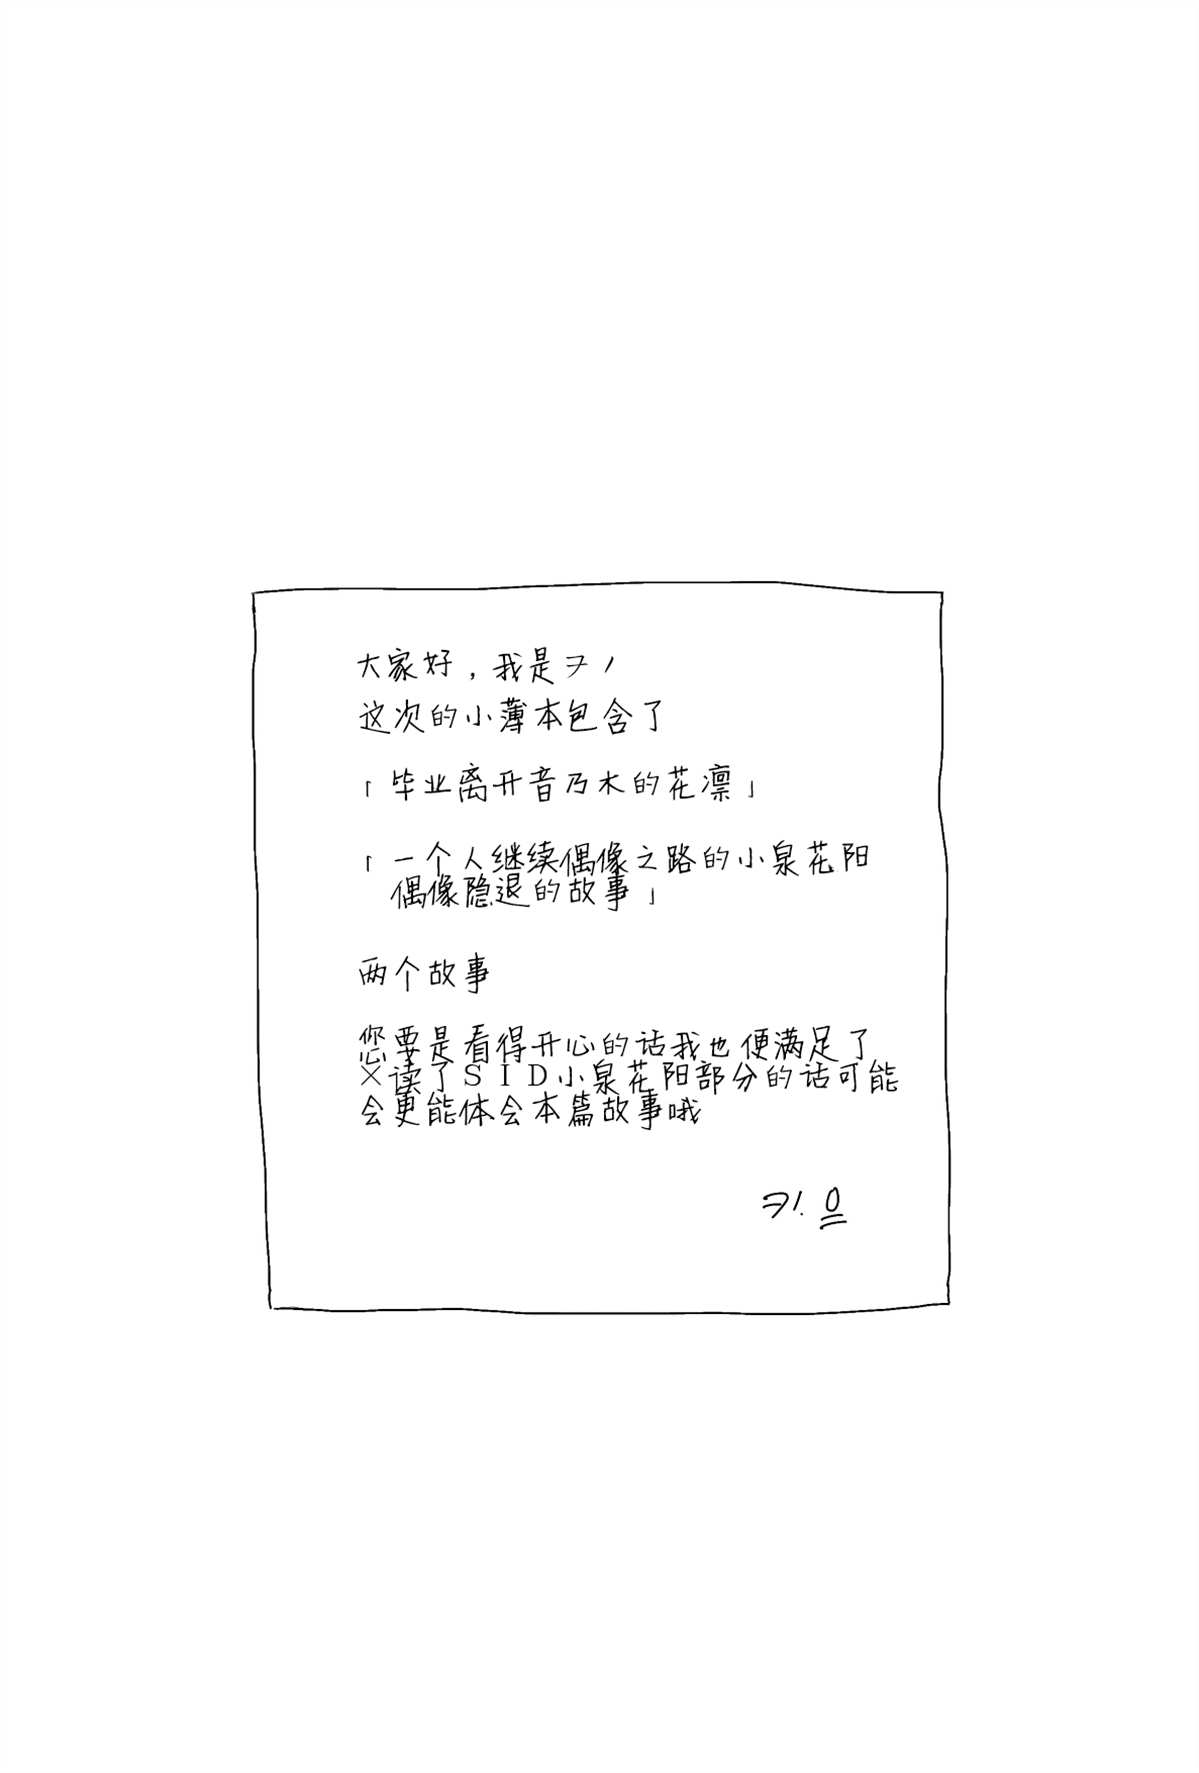 大家好，我是ヲノ
这次的小薄本包含了
「毕业离开音乃木的花凛」
「一个人继续偶像之路的小泉花阳
偶像隐退的故事」
两个故事
您要是看得开心的话我也便满足了
×读了SID小泉花阳部分的话可能
会更能体会本篇故事哦